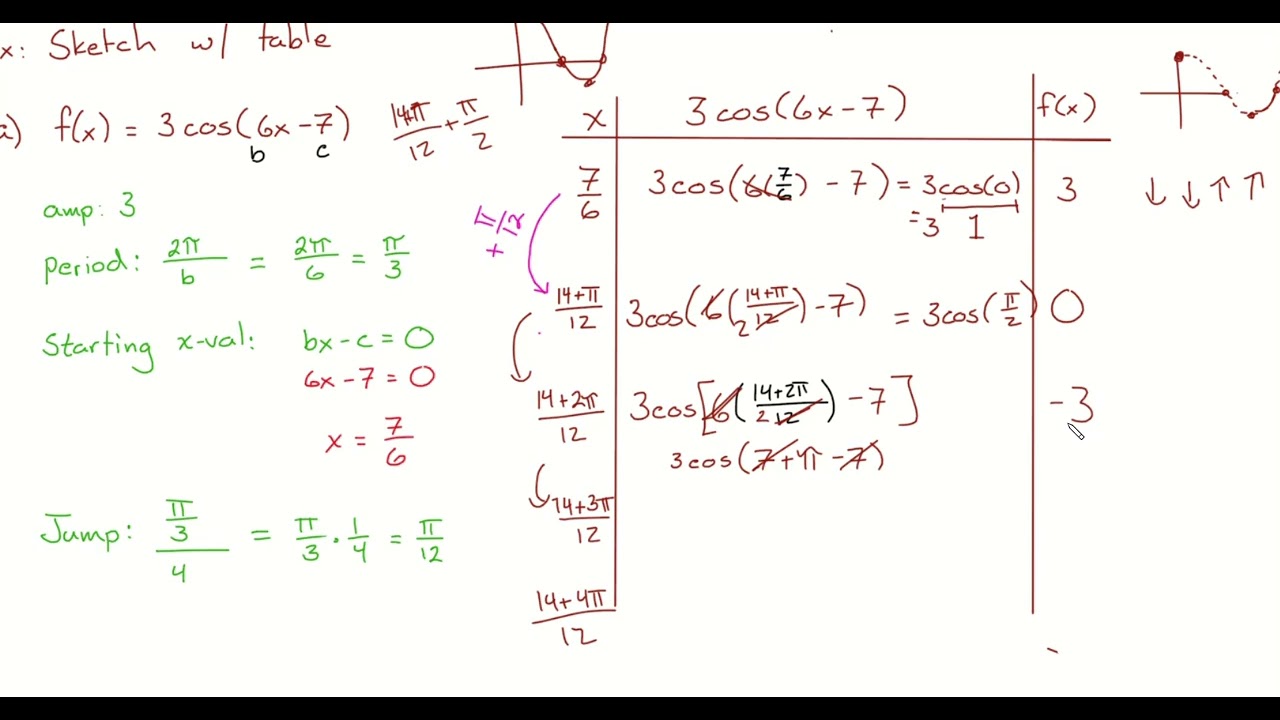 x: Sketch w/ table
a) f(x) = 3cos(6x-7)
b c
14+π/12 + π/2
amp: 3
Period: 2π/b = 2π/6 = π/3
Starting x-val: bx-c=0
6x-7=0
x = 7/6
Jump: π/3/4 = π/3 · 1/4 = π/12
x 3cos(6x-7) f(x)
7/6 3cos(6(7/6) - 7) = 3cos(0) 3 ↓ ↓ ↑ ↑
=3 1
+ π/12
14+π/12 3cos(6(14+π/12)-7) = 3cos(π/2) 0
2
14+2π/12 3cos[6(14+2π/12) -7] -3
2
3cos(7+π-7)
14+3π/12
14+4π/12